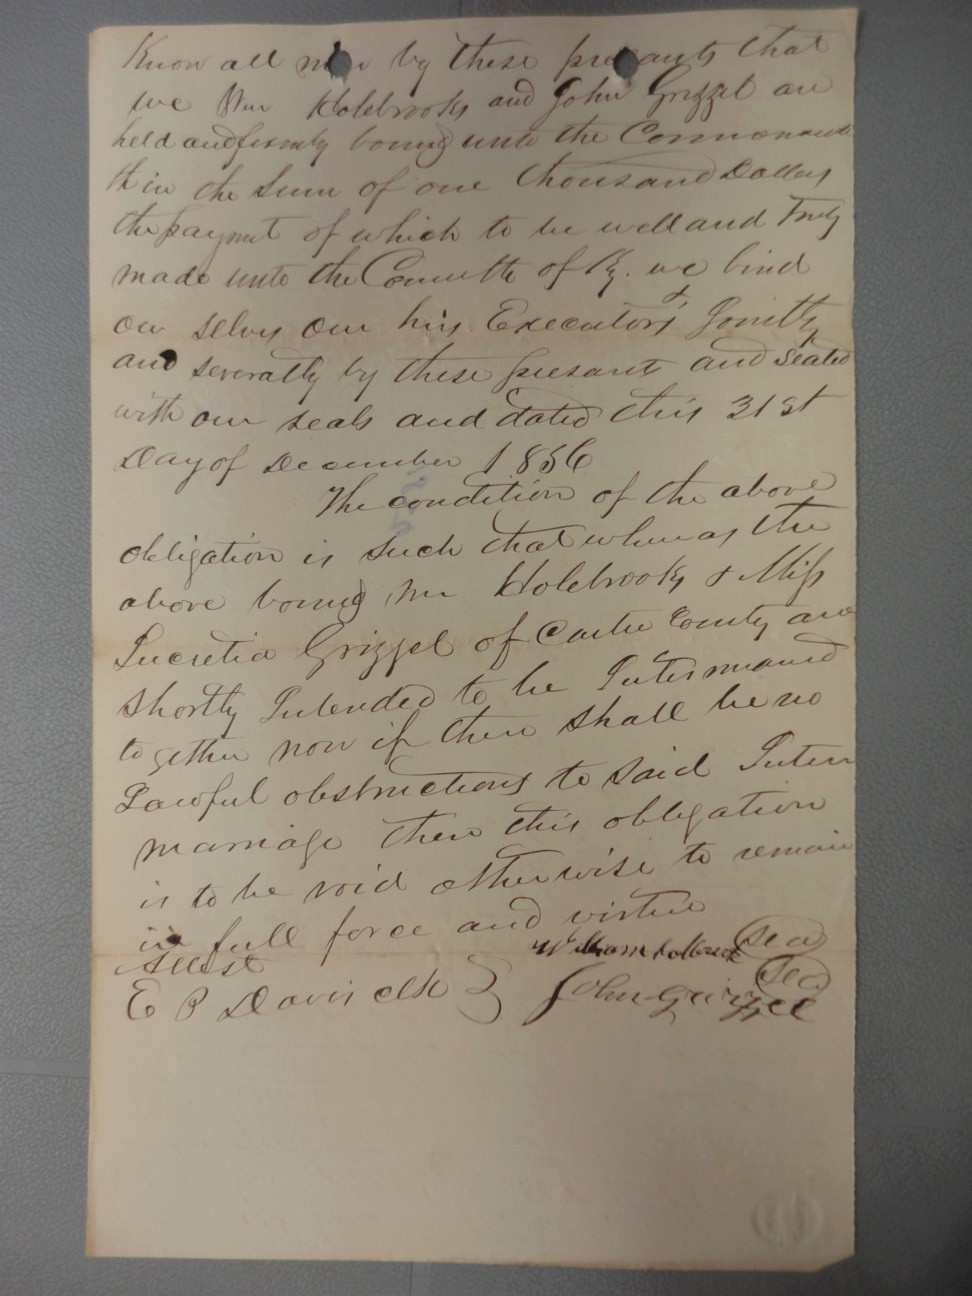 Know all men by these presants that
we Wm Holebrooks and John Grizzel are
held and firmly bound unto the Commonweal
th in the Sum of one thousand Dollars
the paymt of which to be well and Truly
made unto the Comwth of Ky. we bind
our selvs our hirs Executors & Joinitly
and severatly by these presants and Sealed
with our seals and dated this 31st
Day of December 1856
The condition of the above
obligation is such that whereas the
above bound Wm Holebrooks & Miss
Lucretia Grizzel of Carter County are
shortly Intended to be Intermarried
together now if there shall be no
Lawful obstructions to said Inter
marriage then this obligation
is to be void otherwise to remain
in full force and virtue
William holbrook Seal
Attest
Seal
E B Davis clk John Grizzel